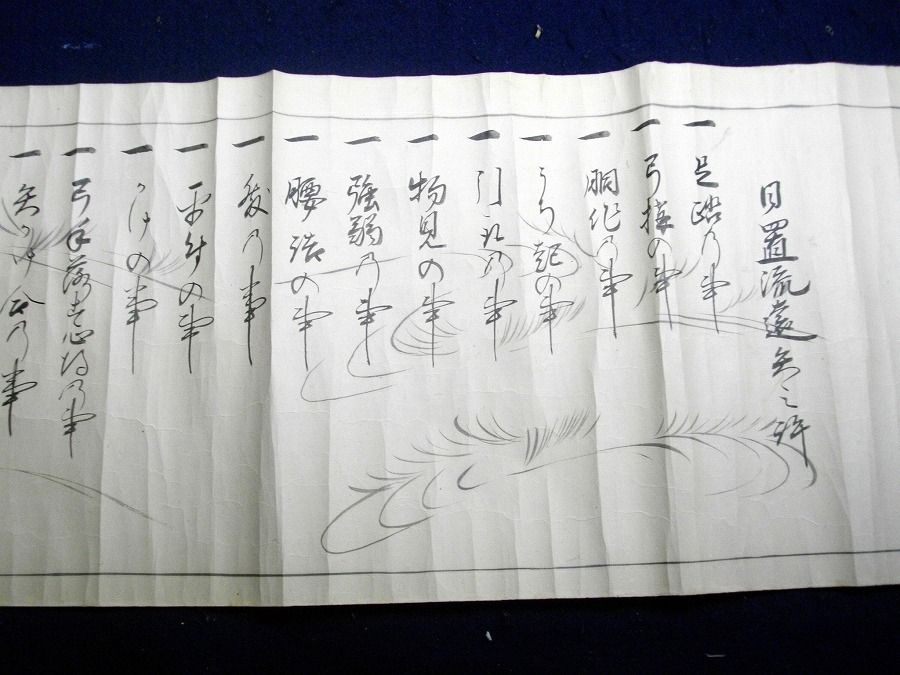 日置流遠矢之許
一 足踏乃事
一 弓搆の事
一 胴作乃事
一 うち起の事
一 引取乃事
一 物見の事
一 強弱乃事
一 腰詰の事
一 発乃事
一 乎付の事
一 かけの事
一 弓手落す心持乃事
一 矢かけ乃事